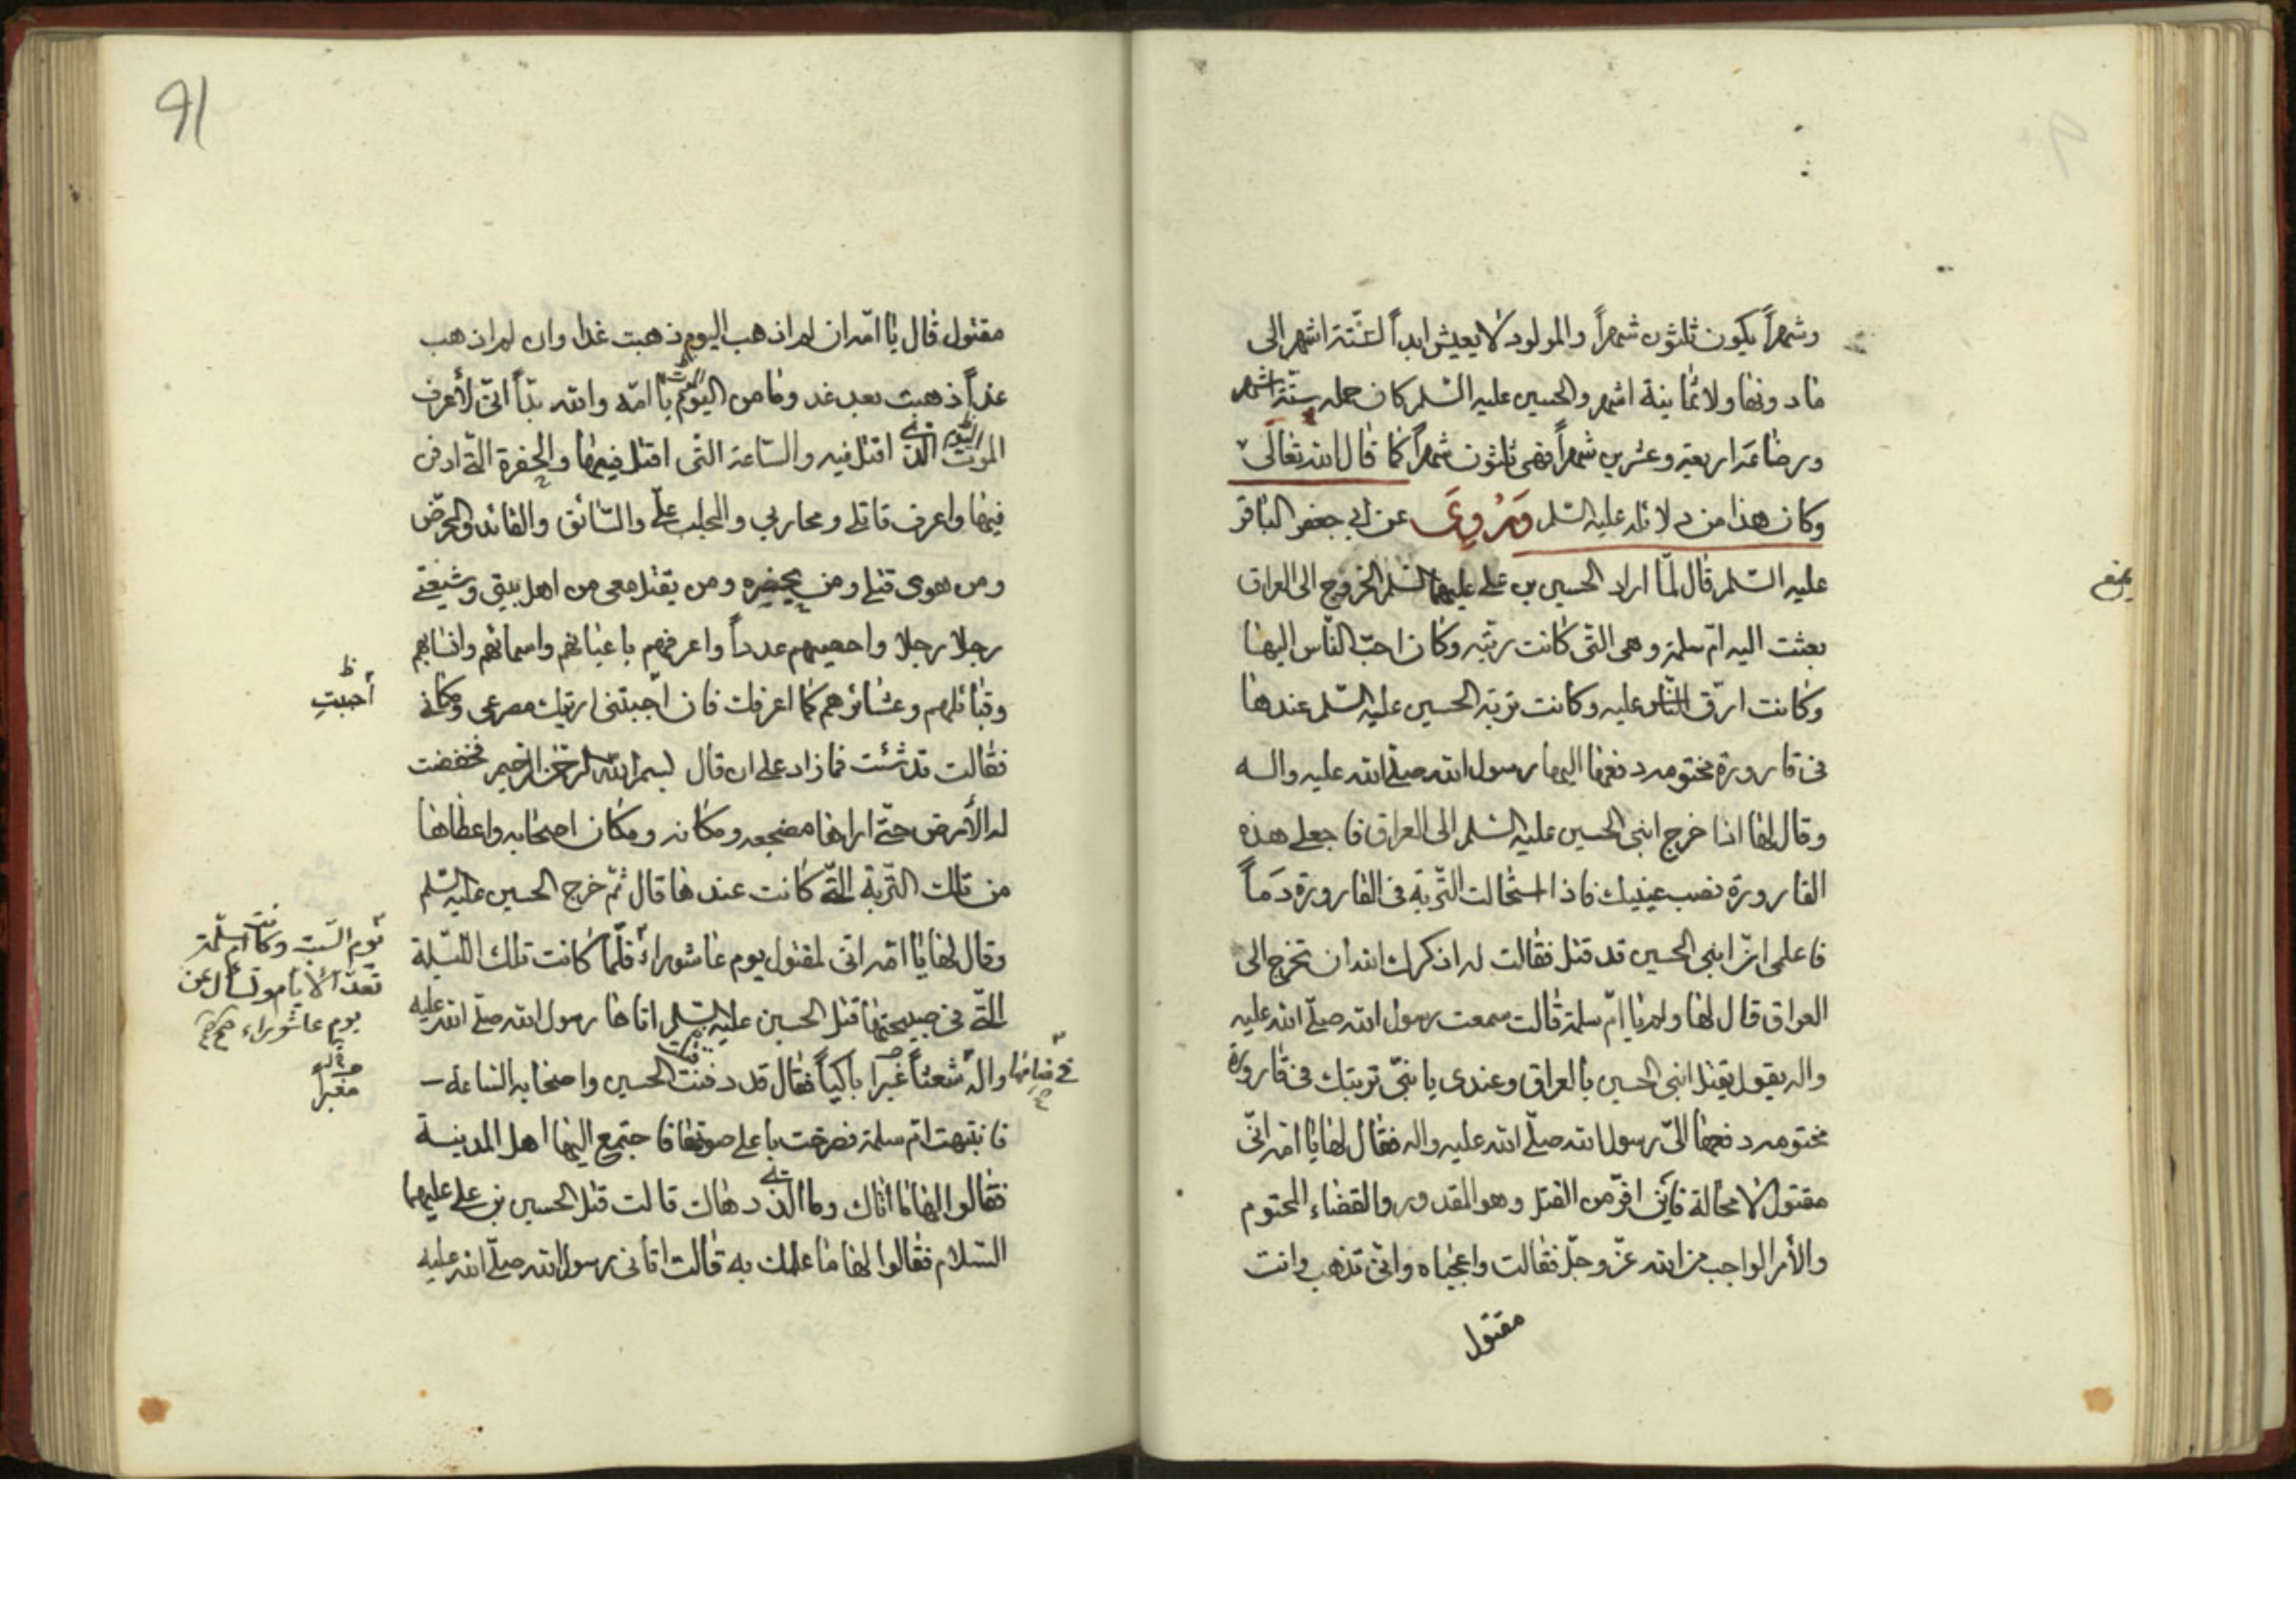 وشهراً يكون ثلثون شهراً والمولود لا يعيش ابداً لستّة اشهر الى
مادونها ولا ثمانية اشهر والحسين عليه السّلم كان حمله ستّة اشهر
ورضاعه اربعة وعشرين شهراً فهى ثلثون شهراً كما قال الله تعالى
وكان هذا من دلائله عليه السّلم وَرُوِىَ عن ابى جعفر الباقر
عليه السّلم قال لمّا اراد الحسين بن على عليهما السّلم الخروج الى العراق
بعثت اليه امّ سلمة وهى التّى كانت ربّته وكان احبّ النّاس اليها
وكانت ارقّ النّاس عليه وكانت تربة الحسين عليه السّلم عندها
فى قارورة مختومة دفعها اليها رسول الله صلّى الله عليه واله
وقال لها اذا خرج ابنى الحسين عليه السّلم الى العراق فاجعلى هذه
القارورة نصب عينيك فاذا استحالت التّربة فى القارورة دَماً
فاعلمى انّ ابنى الحسين قد قتل فقالت له اذكرك الله ان تخرج الى
العراق قال لها ولم يا امّ سلمة قالت سمعت رسول الله صلّى الله عليه
واله يقول يقتل ابنى الحسين بالعراق وعندى يا بنىّ تربتك فى قارورة
مختومة دفعها الىّ رسول الله صلّى الله عليه واله فقال لها يا امّه انّى
مقتول لا محالة فاين افرّ من القتل وهو المقدور والقضاء المحتوم
والأمر الواجب من الله عزّ وجلّ فقالت واعجباه وانّى تذهب وانت
مقتول
91
مقتول قال يا امّه ان لم اذهب اليوم ذهبت غدا وان لم اذهب
غداً ذهبت بعد غد وما من الموت يا امّه والله بدّاً انّى لأعرف
اليوم الّذى اقتل فيه والسّاعة التّى اقتل فيها والحفرة الّتى ادفن
فيها واعرف قاتلى ومحاربى والمجلب علىّ والسّائق والقائد والمحرّض
ومن هو فى قتلى ومن يحضره ومن يقتل معى من اهل بيتى وشيعتى
رجلا رجلا واحصيهم عدداً واعرفهم باعيانهم واسمائهم وانسابهم
وقبائلهم وعشائرهم كما اعرفك فان احببتنى اريتك مصرعى ومكانى
أحببتِ
فقالت قد شئت فما زاد على ان قال بسم الله الرّحمن الرّحيم فخفضت
له الأرض حتّى اراها مضجعه ومكانه ومكان اصحابه واعطاها
من تلك التّربة الّتى كانت عندها قال ثمّ خرج الحسين عليه السّلم
وقال لها يا امّه انّى لمقتول يوم عاشوراء فلّما كانت تلك اللّيلة
يوم السّبت وكانت امّ سلمة
تعدّ الأيّام وتسأل عن
يوم عاشوراء
الّتى فى صبيحتها قتل الحسين عليه السّلم اتاها رسول الله صلّى الله عليه
فى منامها
واله شعثاً غبرا باكياً فقال قد دفنت الحسين واصحابه السّاعة
مغبراً
فانتبهت امّ سلمة فصرخت باعلى صوتها فاجتمع اليها اهل المدينة
فقالوا لها ما اتاك وما الّذى دهاك قالت قتل الحسين بن على عليهما
السّلام فقالوا لها ما علمك به قالت اتانى رسول الله صلّى الله عليه